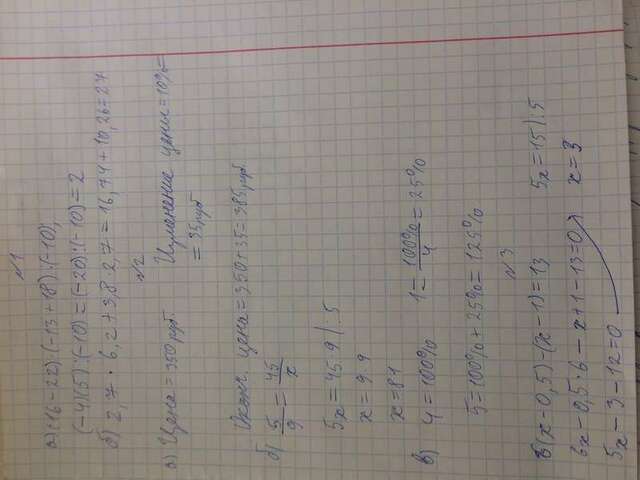 №1
а) (16-22)·(-13+18):(-10);
(-4)(5):(-10)=(-20):(-10)=2
б) 2,7·6,2+3,8·2,7=16,74+10,26=27
№2
а) Цена=350руб. Изменение цены=10%=
=35руб
Оконч. цена=350+35=385руб.
б) 5/9=45/x
5x=45·9|:5
x=9·9
x=81
в) 4=100% 1=100%/4=25%
5=100%+25%=125%
№3
6(x-0,5)-(x-1)=13 5x=15|:5
6x-0,5·6-x+1-13=0 x=3
5x-3-12=0